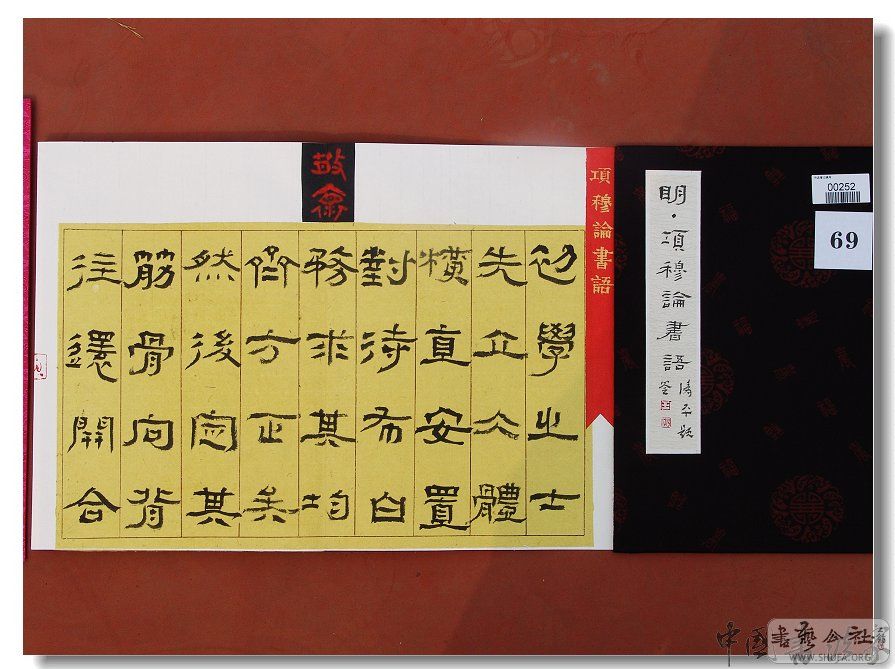 初學之士
先立大體
橫直安置
對待布白
務求其均
齊方正矣
然後定其
筋骨向背
往還開合
敬齋
項穆論書語
明·項穆論書語
00252
69
中国書藝公社
WWW.SHUFA.ORG